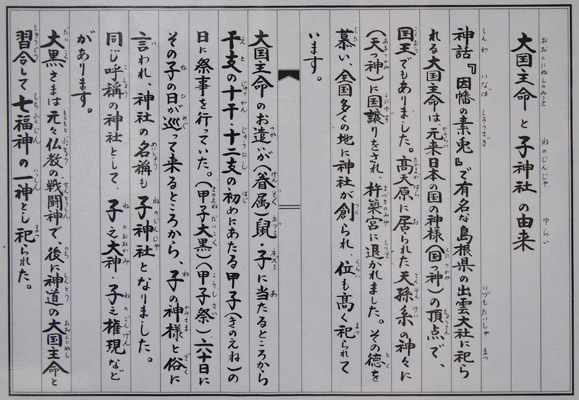 大国主命と子神社の由来
神話『因幡の素兎』で有名な島根県の出雲大社に祀ら
れる大国主命は元来日本の国の神様（国つ神）の頂点で、
国王でもありました。高天原に居られた天孫系の神々に
（天つ神）に国譲りをされ、杵築宮に退かれました。その徳を
慕い、全国多くの地に神社が創られ、位も高く祀られて
います。
大国主命のお遣いが（眷属）鼠・子に当たるところから
干支の十干・十二支の初めにあたる甲子（きのえね）の
日に祭事を行っていた。（甲子大黒）（甲子祭）六十日に
その子の日が巡って来るところから、子の神様と俗に
言われ、神社の名称も子神社となりました。
同じ呼称の神社として、子之大神・子之権現など
があります。
大黒さまは元々仏教の戦闘神で、後に神道の大国主命と
習合して七福神の一神とし祀られた。